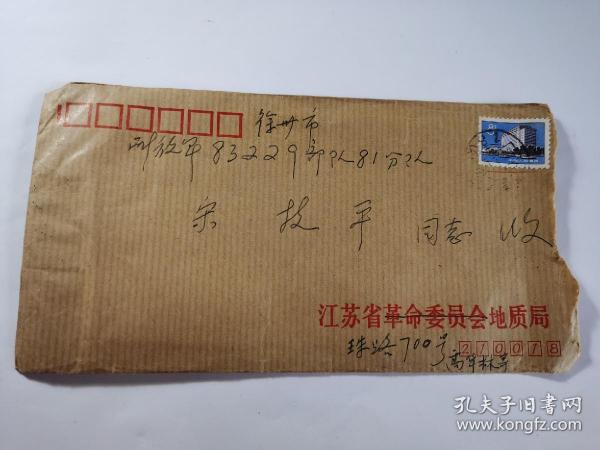 徐州市
解放军83229部队81分队
宋 技 平 同志 收
江苏省革命委员会地质局
珠路700号
210018
孔夫子旧书网
www.kongfz.com